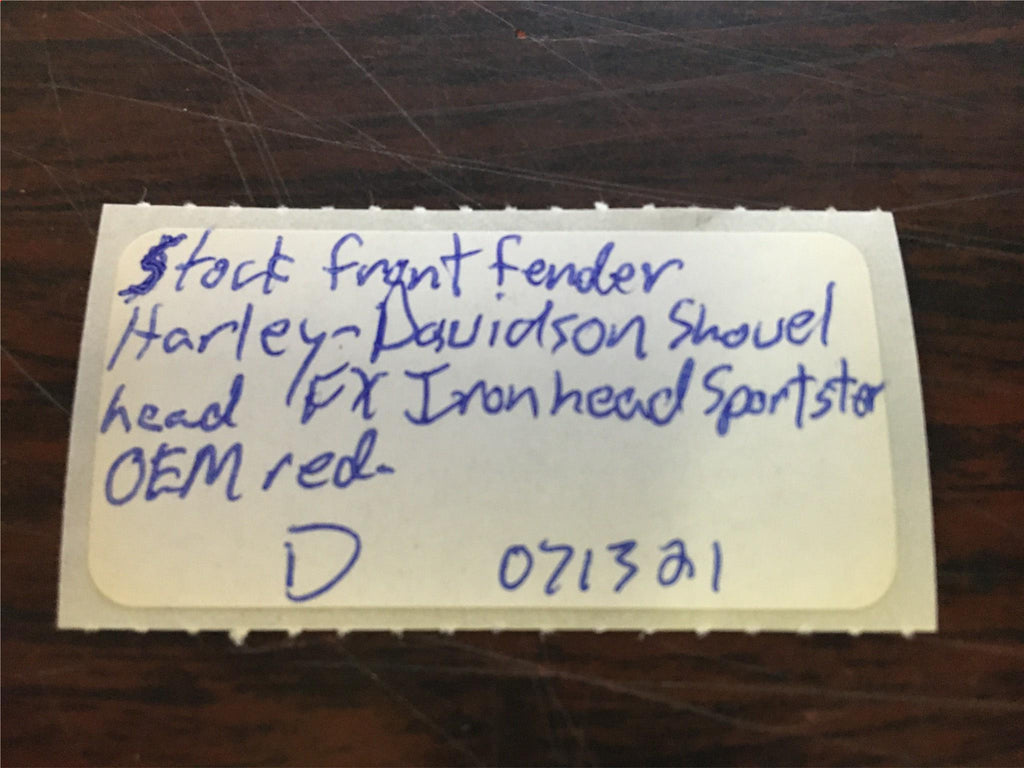 Stock front fender
Harley-Davidson Shovel
head FX Ironhead Sportster
OEM red.
D 071321